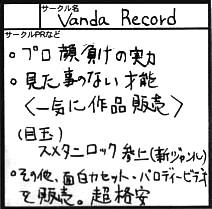 サークル名
Vanda Record
サークルPRなど
○プロ顔負けの実力
○見た事のない才能
〈一気に作品販売〉
(目玉)
スメタニロック参上(新ジャンル)
○その他、面白カセット・パロディービデオ
も販売。超格安